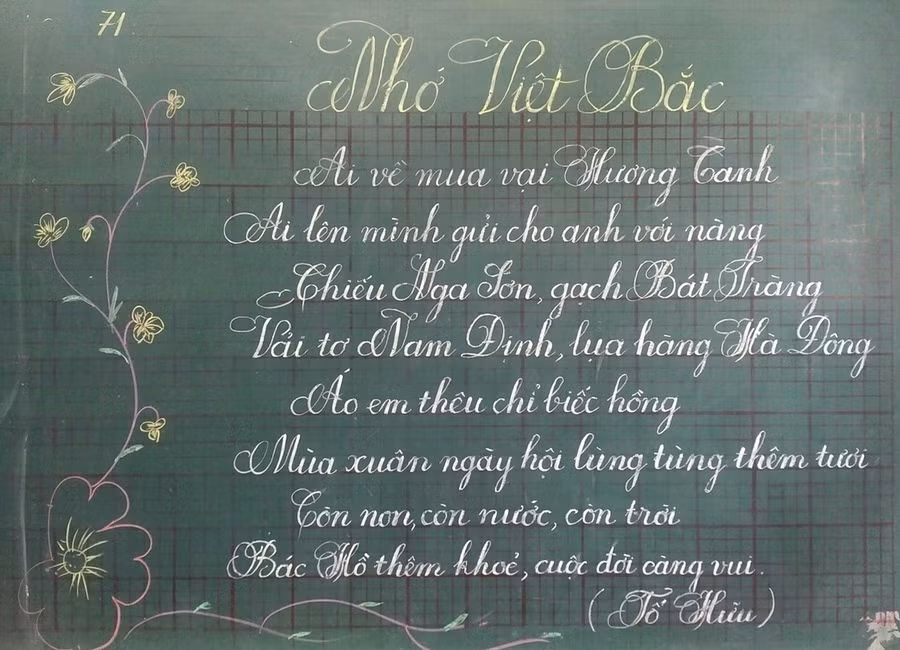 71.
Nhớ Việt Bắc
Ai về mua vại Hương Canh
Ai lên mình gửi cho anh với nàng
Chiếu Nga Sơn, gạch Bát Tràng
Vải tơ Nam Định, lụa hàng Hà Đông
Áo em thêu chỉ biếc hồng
Mùa xuân ngày hội lùng tùng thêm tươi
Còn non, còn nước, còn trời
Bác Hồ thêm khoẻ, cuộc đời càng vui.
(Tố Hữu)